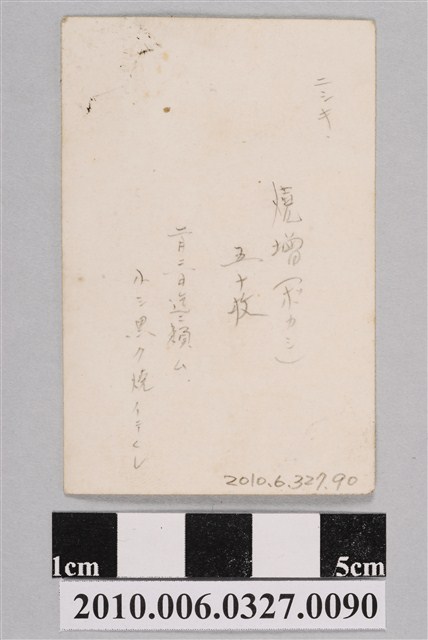 ニシキ.
焼増(ボカシ)
五十枚
二月二日迄ニ頼ム.
少シ黒ク焼イテクレ
2010.6.327.90
1cm 5cm
2010.006.0327.0090